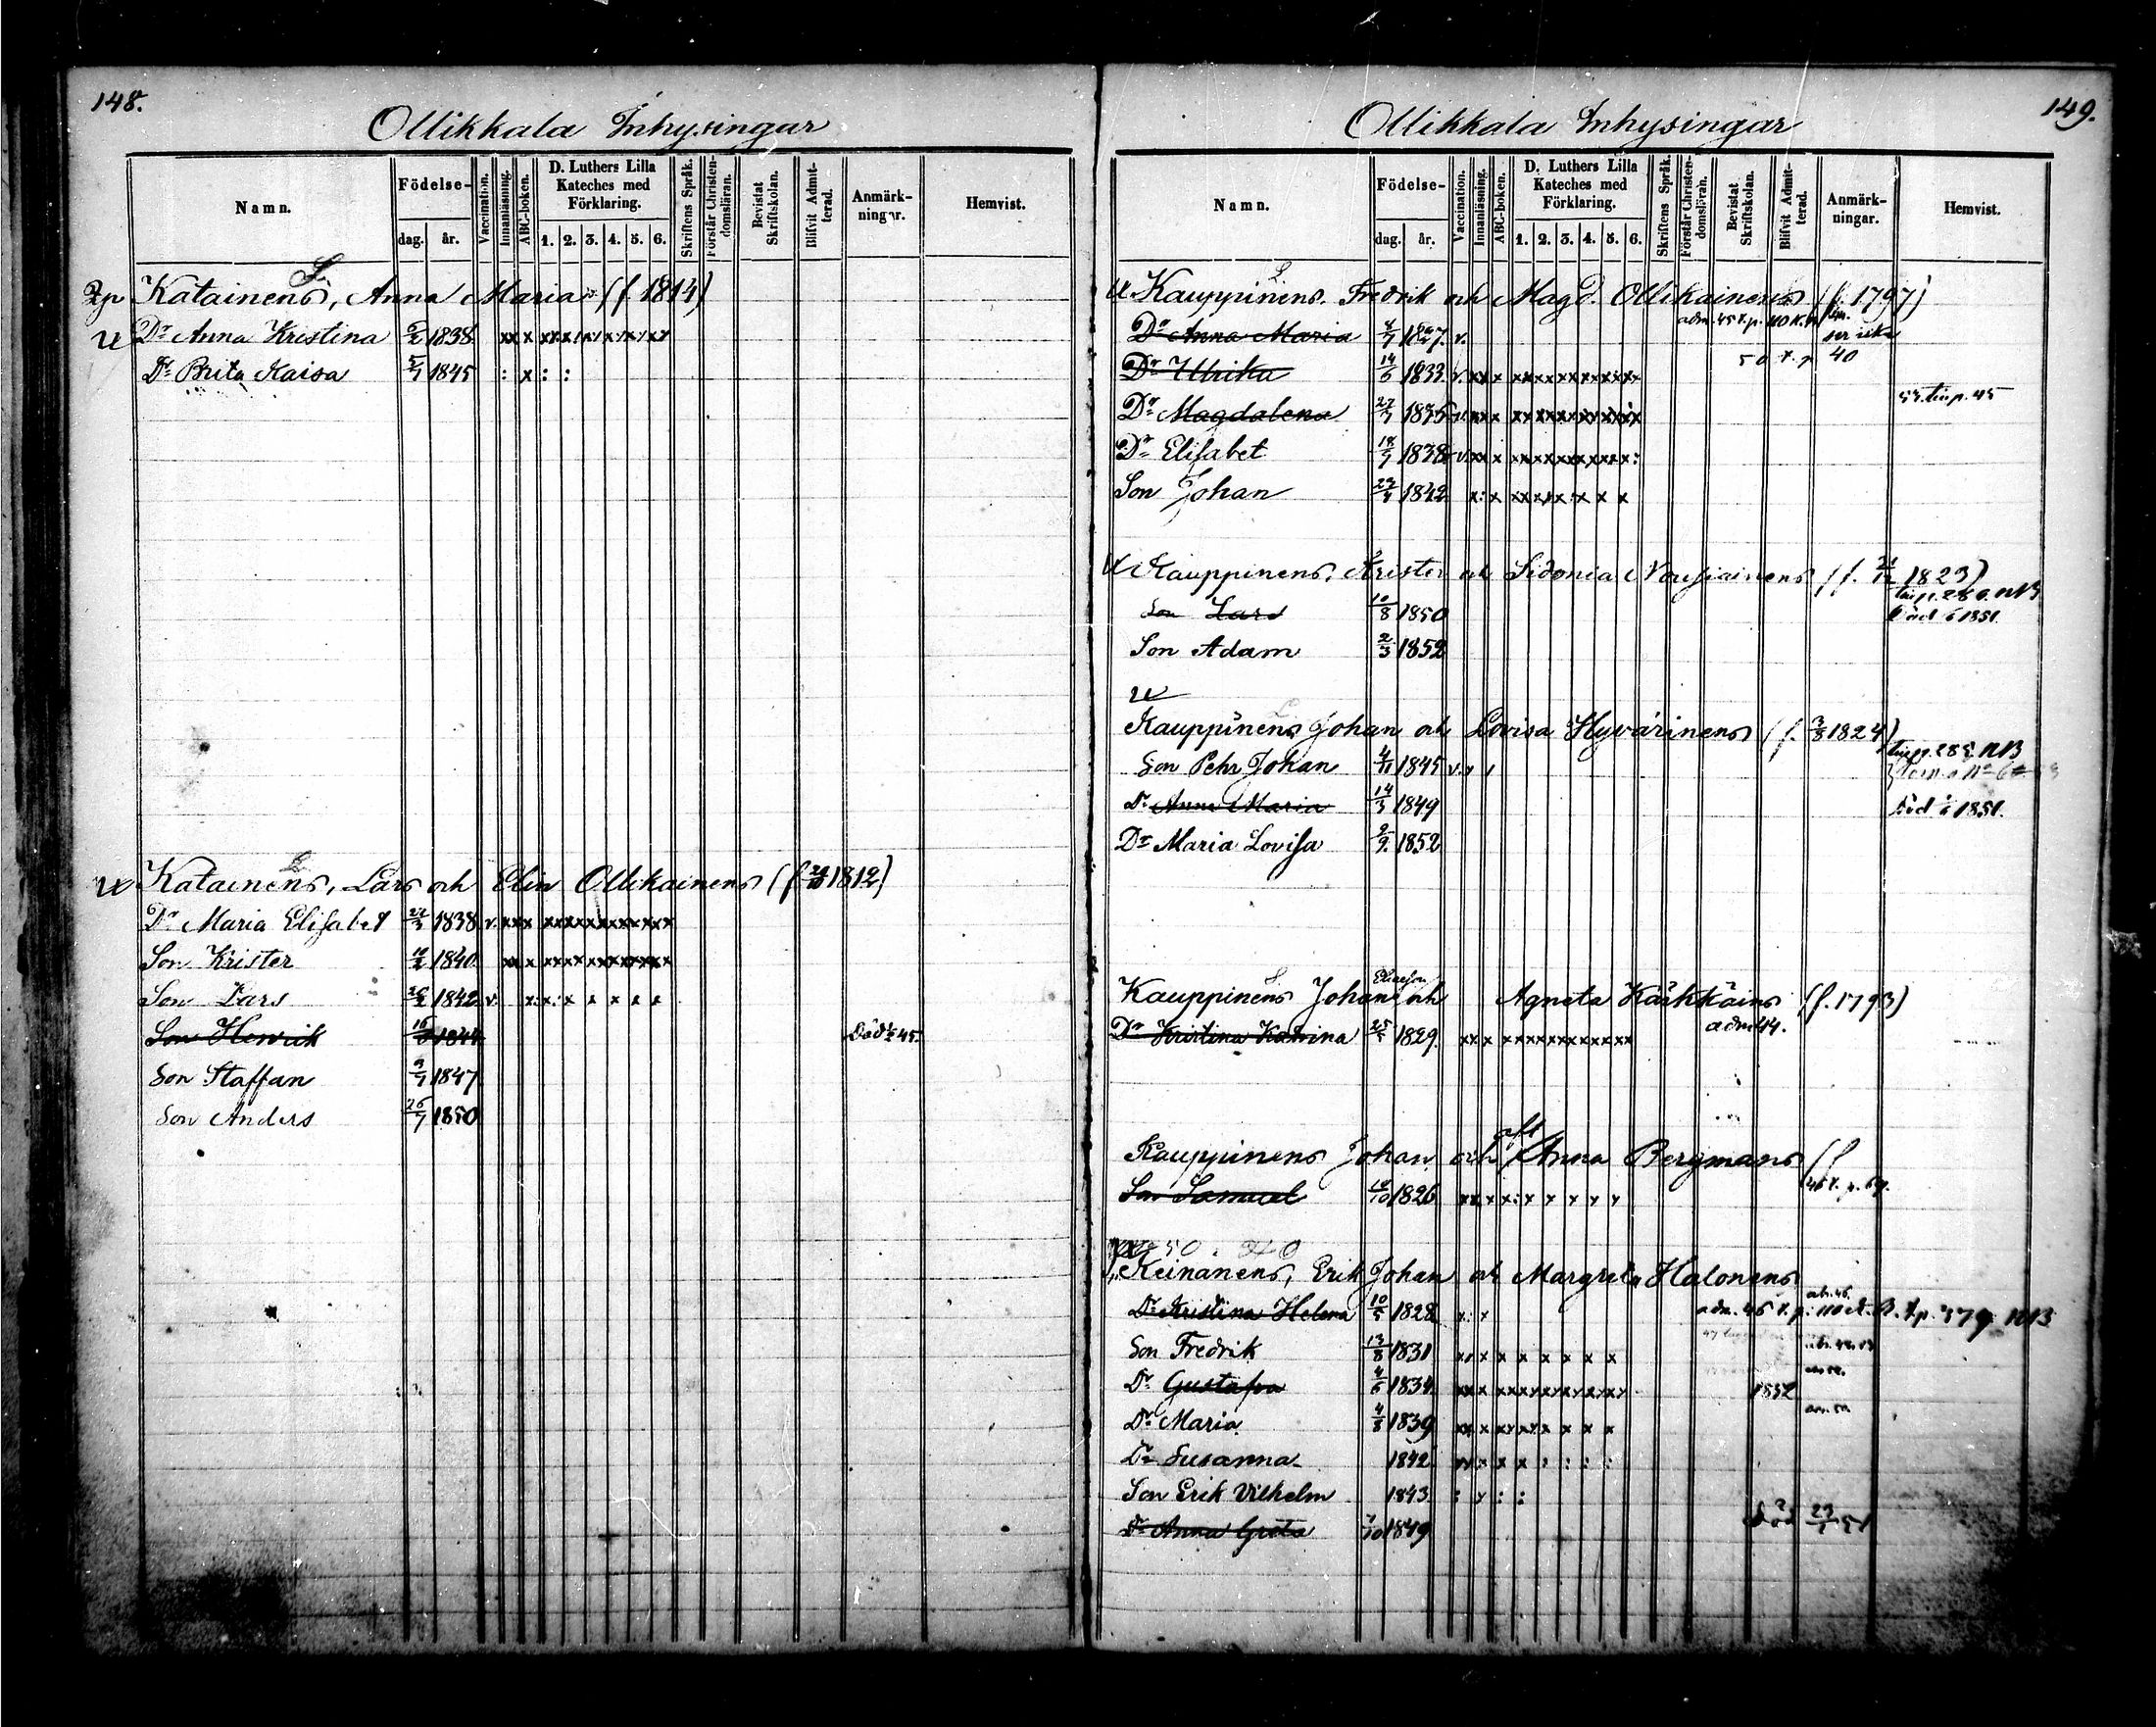 148.
Ollikkala Inhysingar
Namn.
Födelse-
dag.
år.
Vaccination.
Innanläsning.
ABC-boken.
D. Luthers Lilla Kateches med Förklaring.
1. 2. 3. 4. 5. 6.
Skriftens Språk.
Förstår Christendomsläran.
Bevistat Skriftskolan.
Blifvit Admitterad.
Anmärkningar.
Hemvist.
Katainens, Anna Maria (f. 1814)
Dr Anna Kristina 1838
Dr Brita Kaisa 5/7 1845
Katainens, Lars och Elin Ollikainens (f. 1812)
Dr Maria Elisabet 1838 v.
Son Krister 1840
Son Lars 1842 v.
Son Henrik 1844 Död 45.
Son Staffan 9/7 1847
Son Anders 26/7 1850
149.
Ollikkala Inhysingar
Namn.
Födelse-
dag.
år.
Vaccination.
Innanläsning.
ABC-boken.
D. Luthers Lilla Kateches med Förklaring.
1. 2. 3. 4. 5. 6.
Skriftens Språk.
Förstår Christendomsläran.
Bevistat Skriftskolan.
Blifvit Admitterad.
Anmärkningar.
Hemvist.
Kauppinens. Fredrik och Magd. Ollikainens (f. 1797)
Dr Anna Maria 1827. v.
Dr Ulrika 14/6 1833. v. 50 40
Dr Magdalena 27/7 1835 53. p. 45
Dr Elisabet 18/7 1838 v.
Son Johan 1842
Kauppinens, Krister och Sidonia Nousiainens (f. 1823)
Son Lars 10/8 1850 Död 1851.
Son Adam 2/3 1852
Kauppinens Johan och Lovisa Hyvärinens (f. 3/8 1824)
Son Pehr Johan 4/11 1845 v.
Dr Anna Maria 14/3 1849 Död 1851.
Dr Maria Lovisa 9. 1852
Kauppinens Johan och Agneta Kärkkäins (f. 1793)
Dr Kristina Katrina 1829. adm. 44.
Kauppinens Johan och Anna Bergmans
Son Samuel 1826
Keinänens, Erik Johan och Margreta Halonens
Dr Kristina Helena 10/5 1828 adm. 46 p. 379 NB
Son Fredrik 13/8 1831
Dr Gustafva 1834 1852
Dr Maria 4/8 1839
Dr Susanna 1842
Son Erik Vilhelm 1843
Dr Anna Greta 1849 Död 51